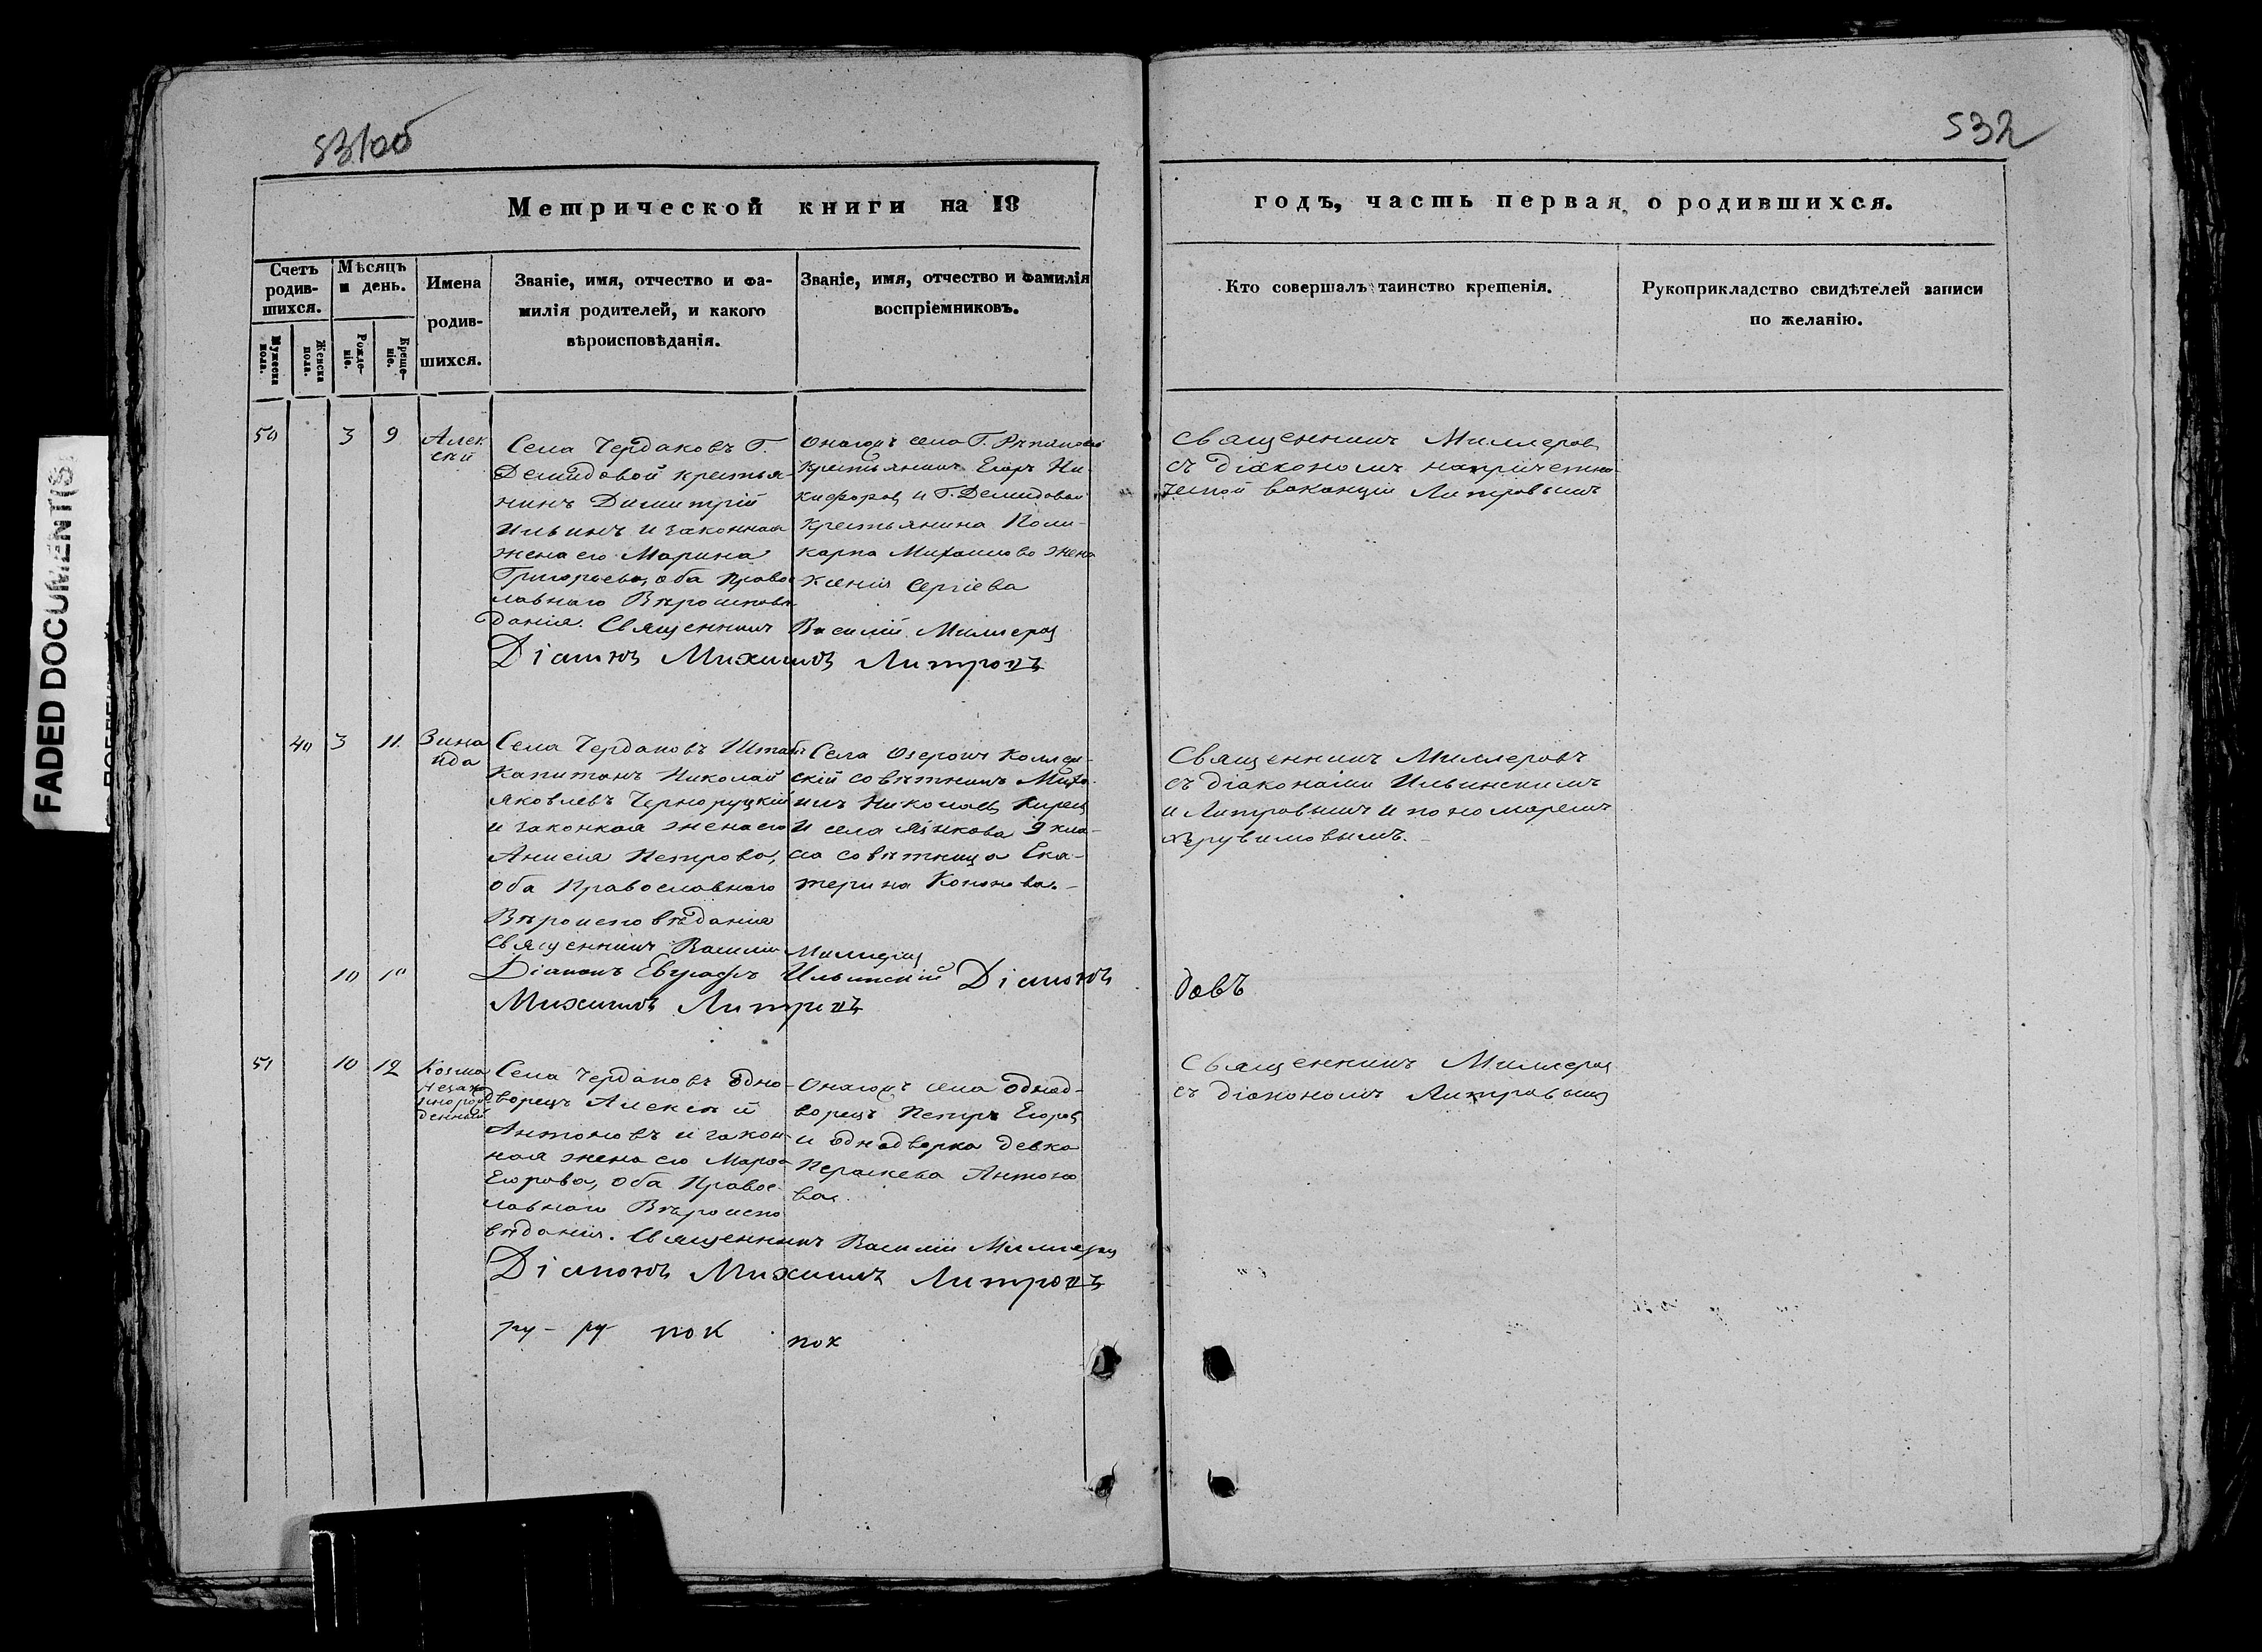 531об
532
Метрической книги на 18
годъ, часть первая, о родившихся.
Счетъ родив-
шихся.
Мѣсяцъ
и день.
Имена
родив-
шихся.
Званіе, имя, отчество и фа-
милія родителей, и какого
вѣроисповѣданія.
Званіе, имя, отчество и фамилія
воспріемниковъ.
Кто совершалъ таинство крещенія.
Рукоприкладство свидѣтелей записи
по желанію.
Мужеска
пола.
Женска
пола.
Рожде-
ніе.
Креще-
ніе.
50
3
9
Алек
сѣй
Села Чердаковъ Г.
Демидовой крестья-
нинъ Димитрій
Ильинъ и законная
жена его Марина
Григорьева, оба Право-
славнаго Вѣроисповѣ
данія. Священникъ Василій Миллеровъ
Діаконъ Михаилъ Литровъ
онагожъ села Г.
крестьянинъ Егоръ Ни-
кифоровъ и Г. Демидовой
крестьянина Поли-
карпа Михайлова жена
Ксенія Сергіева
Священникъ Миллеровъ
съ діакономъ на причетни-
ческой ваканціи Литровымъ
40
3
11.
Зина
ида
Села Чердаковъ Штабъ
Капитанъ Николай
Яковлевъ Черноруцкій
и законная жена его
Анисія Петрова,
оба Православнаго
Вѣроисповѣданія
Священникъ Василій Миллеровъ
Діаконъ Евграфъ Ильинскій Діаконъ
Михаилъ Литровъ
Села Озерокъ Коллеж-
скій совѣтникъ Миха-
илъ Николаевъ
и села 9 кла-
са совѣтница Ека-
терина Кононова.
Священникъ Миллеровъ
съ діаконами Ильинскимъ
и Литровымъ и пономаремъ
Херувимовымъ.
10
10
довъ
51
10
12
Козма
незако
норож
денный
Села Чердаковъ одно-
дворецъ Алексѣй
Антоновъ и закон-
ная жена его Марѳа
Егорова, оба Правос-
лавнаго Вѣроиспо
вѣданія. Священникъ Василій Миллеровъ
Діаконъ Михаилъ Литровъ
онагожъ села однод-
ворецъ Петръ Егоровъ
и однодворка девка
Пераскева Антоно
ва.
Священникъ Миллеровъ
съ діакономъ Литровымъ
ру - ру пок пок
FADED DOCUMENT(S)